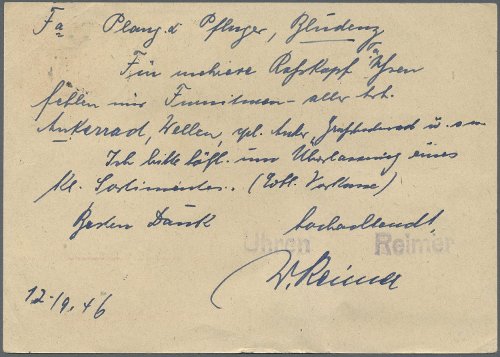 Fa Plang & Pfluger, Bludenz
Für mehrere Roskopf Uhren
fehlen mir Furnituren aller Art.
Ankerrad, Wellen, kpl. Anker, u. s. w.
Ich bitte höfl. um Überlassung eines
kl. Sortimentes. (Evtl. Vorkasse)
Besten Dank hochachtend,
Uhren Reimer
W. Reimer
12.19.46